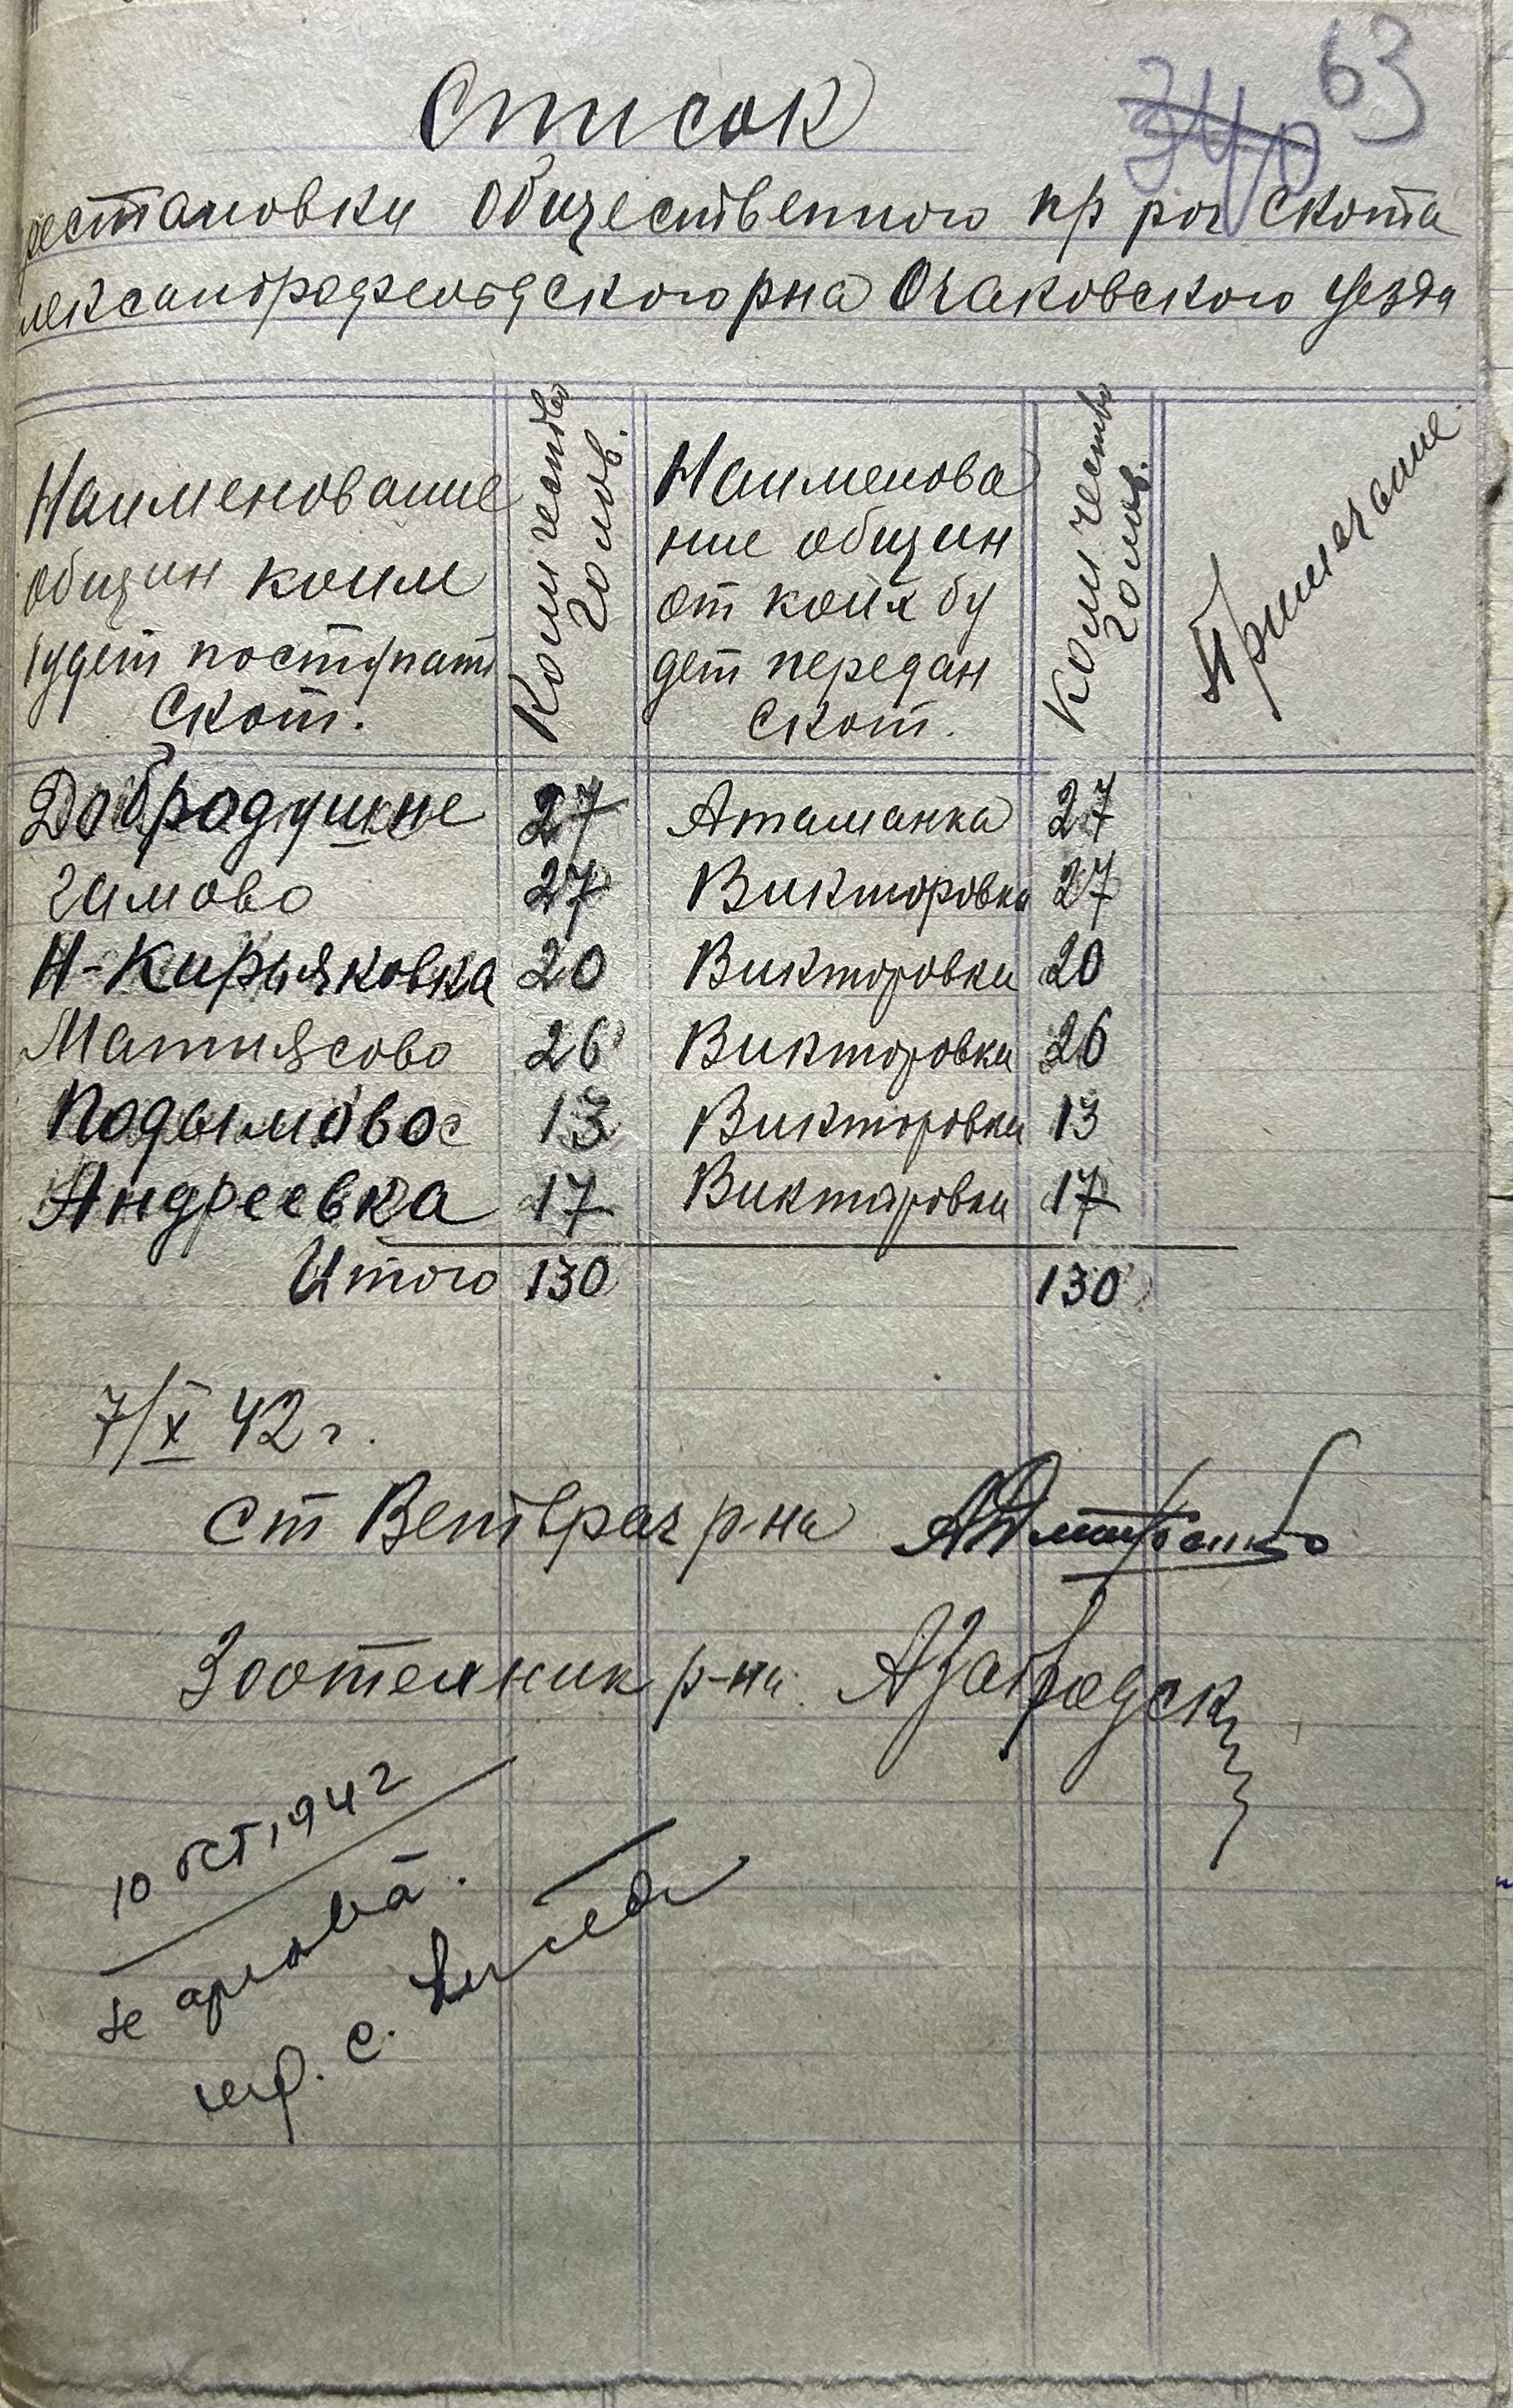 63
340
Список
рестановки Общественного кр рог Скота
лександрофельдского рна Очаковского уезда
Наименование
общин коим
будет поступать
Скот.
Количество
голов.
Наименова
ние общин
от коих бу
дет передан
скот.
Количество
голов.
Примечание
Добродушне 27 Атаманка 27
Гамово 27 Викторовка 27
Н-Кирьяковка 20 Викторовки 20
Матиясово 26 Викторовки 26
Подымово 13 Викторовки 13
Андреевка 17 Викторовки 17
Итого 130 130
7/X 42 г.
Ст Ветврач р-на
Зоотехник р-на. АЗабродск
10 Oct 1942
Se aprobă.